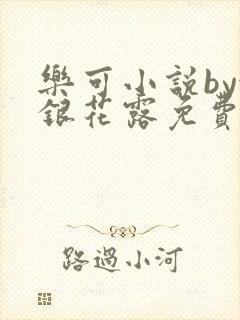 樂可小說by
銀花露免費
路過小河